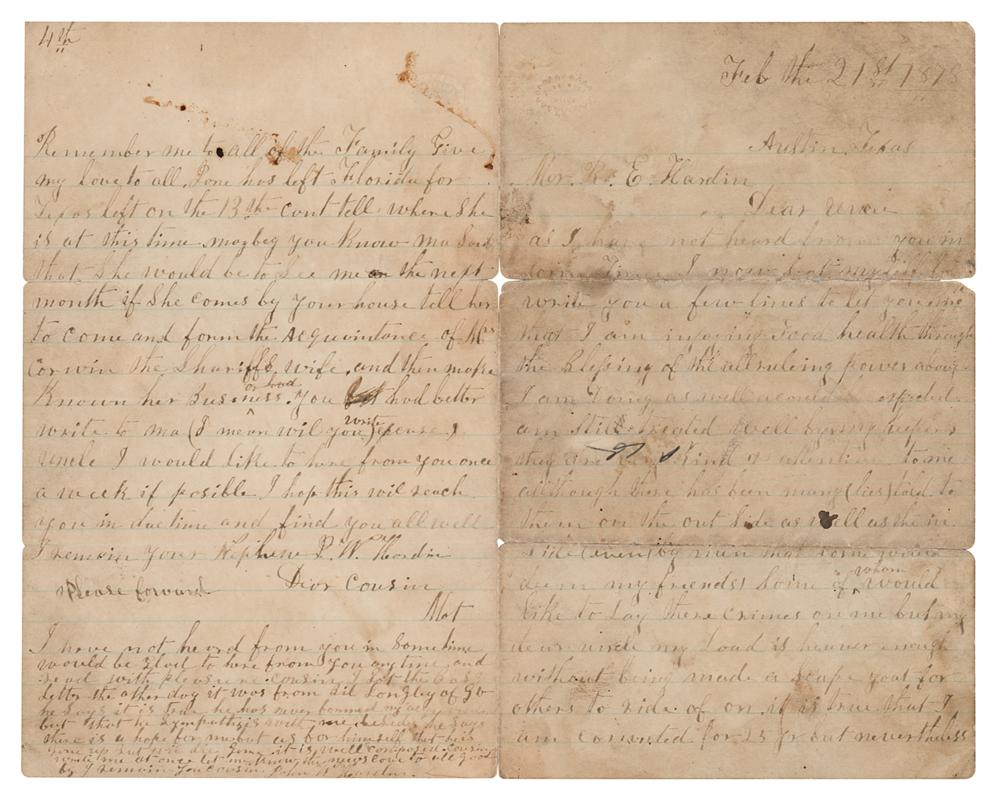 4th
Remember me to all of the Family Give
my love to all. Jane has left Florida for
Texas left on the 13th cant tell where She
is at this time maybey you Know ma Said
that She would be to See me on the next
month if She comes by your house tell her
to come and form the Acquintance of Mrs
Corwin the Shariffs wife and then make
or bad
Known her Business. You had better
write
write to ma (I mean wil you) please,
uncle I would like to here from you once
a week if posible I hop this wil reach
you in due time and find you all well
I remain your Nephew J. W. Hardin
Please forward
Dear Cousin
Mat
I have not heard from you in Sometime
would be glad to here from you any time and
read with pleasure cousin I got the
letter the other day it was from Bil Longley of
he Says it is true he has never
but that he Sympathisis with me beside he Says
there is a hope for me but as for himself that he is
gone up but wil die Game it is well composed cousin
write me at once let me know the news love to all good
by I remain you cousin John W Hardin
Feb the 21st 1878
Austin, Texas
Mr. R. E. Hardin
Dear Uncle
as I have not heard from you in
Some Time I now Seat myself to
write you a few lines to let you
that I am injoying Good health through
the blessing of the allruling power above
I am Doing as well as could expected
am Still treated well by my
they are very Kind & attentive to me
although there has been many (lies) told to
them on the out Side as well as the in
Side (even) by men that some would
whom
deem my friends! Some of would
like to Lay there Crimes on me but my
dear uncle my Load is heavey enough
without being made a Scape goat for
others to ride of on. it is true that I
am convicted for 25 yr but nevertheless